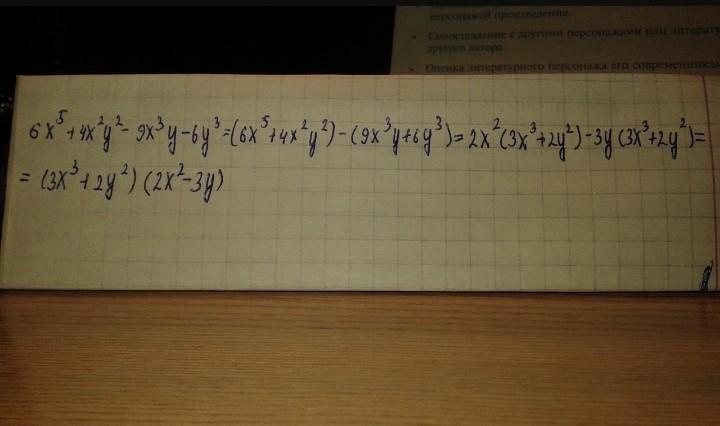 персонажей произведения.
• Сопоставление с другими персонажами или литерату
другого автора.
• Оценка литературного персонажа его современникам
6x⁵+4x²y²-9x³y-6y³=(6x⁵+4x²y²)-(9x³y+6y³)=2x²(3x³+2y²)-3y(3x³+2y²)=
=(3x³+2y²)(2x²-3y)